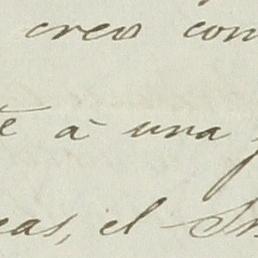 creo con
te à una
cas, el